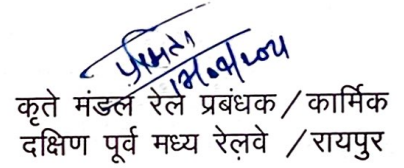 कृते मंडल रेल प्रबंधक / कार्मिक
दक्षिण पूर्व मध्य रेलवे / रायपुर